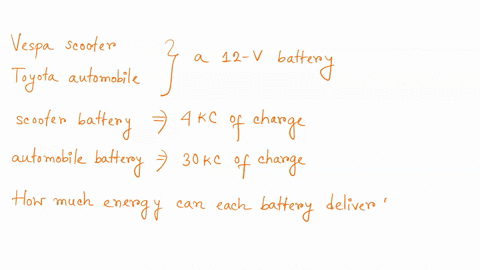 Vespa scooter
Toyota automobile } a 12-V battery
scooter battery ⇒ 4 KC of charge
automobile battery ⇒ 30 KC of charge
How much energy can each battery deliver '